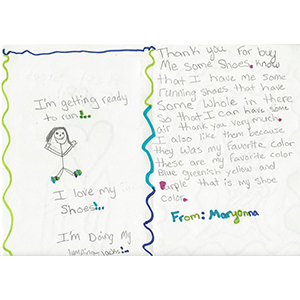 I'm getting ready
to run!..
I love my
Shoes!..
I'm Doing My
jumping-jacks!..
Thank you For buy
Me Some Shoes. know
that I have me some
running shoes that have
Some Whole in there
So that I can have some
air thank you very much.
I also like them because
they was my Favorite color
these are my favorite color
Blue greenish yellow and
Purple that is my shoe
color.
From: Maryonna